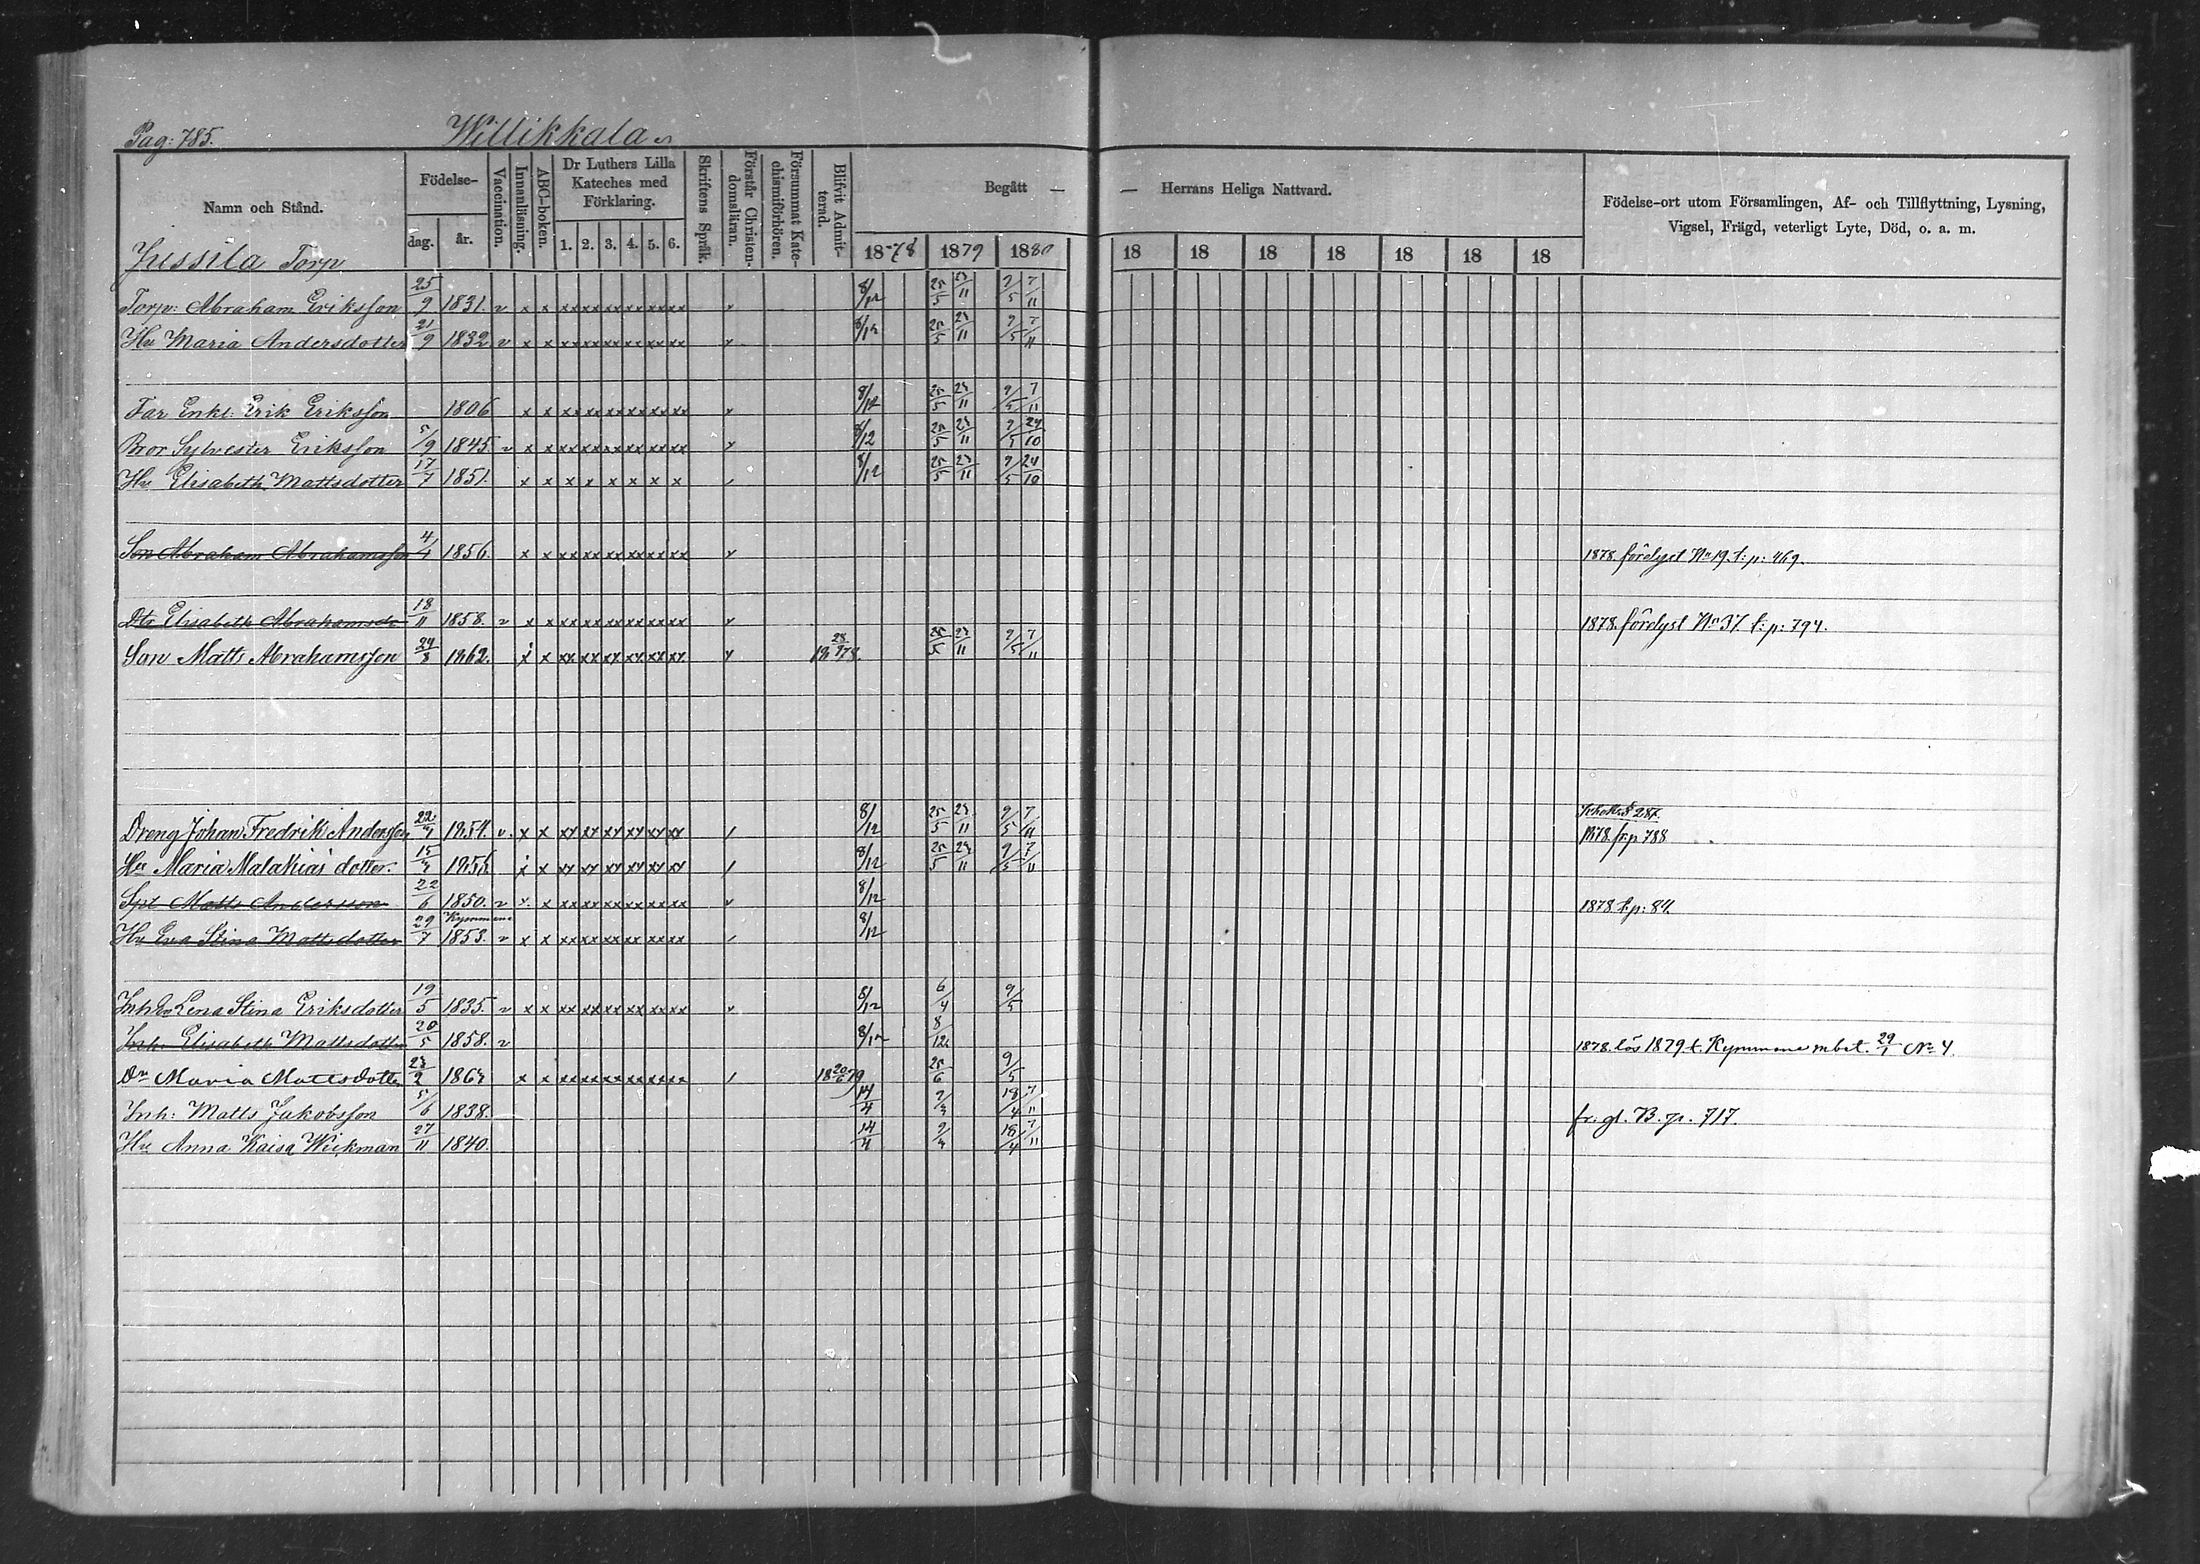 Pag: 785. Willikkala
Namn och Stånd. Födelse- dag. år. Vaccination. Innanläsning. ABC-boken. Dr Luthers Lilla Kateches med Förklaring. 1. 2. 3. 4. 5. 6. Skriftens Språk. Förstår Christendomsläran. Försummat Katechismiförhören. Blifvit Admitterad. Begått — — Herrans Heliga Nattvard. Födelse-ort utom Församlingen, Af- och Tillflyttning, Lysning, Vigsel, Frägd, veterligt Lyte, Död, o. a. m.
1878 1879 1880 18 18 18 18 18 18 18
Jussila Torp
Torp: Abraham Eriksson 25/9 1831. v x x xx xx xx xx xx xx 8/12 25/5 23/11 9/5 7/11
Hu Maria Andersdotter 21/9 1832 v x x xx xx xx xx xx xx 8/12 25/5 23/11 9/5 7/11
Far Enkl: Erik Eriksson 1806 x x xx xx xx xx xx xx 8/12 25/5 23/11 9/5 7/11
Bror Sylvester Eriksson 5/9 1845. v x x xx xx xx xx xx xx 8/12 25/5 23/11 9/5 24/10
Hu Elisabeth Mattsdotter 17/7 1851. x x x x x x x x 8/12 25/5 23/11 9/5 24/10
Son Abraham Abrahamsson 4/4 1856. x x xx xx xx xx xx xx 1878 förelyst No 19. t: p: 469.
Dtr Elisabeth Abrahamsdr 18/11 1858. v x x xx xx xx xx xx xx 1878. förelyst No 37 t: p: 794.
Son Matts Abrahamsson 24/8 1862. x x xx xx xx xx xx xx 25/5 23/11 9/5 7/11
Dreng Johan Fredrik Andersson 1854. v. x x xx xx xx xx xx xx 8/12 25/5 23/11 9/5 7/11 1878. fr. p 788
Hu Maria Malakias dotter. x x xx xx xx xx xx xx 8/12 25/5 23/11 9/5 7/11
Matts Andersson 22/6 1850. v x. x xx xx xx xx xx xx 8/12 1878 t. p: 84.
Hu Eva Stina Mattsdotter 29/7 Kymmene 1853. v x x xx xx xx xx xx xx 8/12
Lena Stina Eriksdotter 19/5 1835. v x x xx xx xx xx xx xx 8/12 6/4 9/5
Inh: Elisabeth Mattsdotter 20/5 1858. v 8/12 8/12 1878. lös 1879 t. Kymmene mbet. 29/1 No 4.
Dr Maria Mattsdotter 23/2 x x xx xx xx xx xx xx 18 20/6 79 25/6 9/5
Inh: Matts Jakobsson 5/6 1838. 14/4 18/4 7/11 fr. gl. B. p. 717.
Hu Anna Kaisa Wickman 27/11 1840. 14/4 18/4 7/11